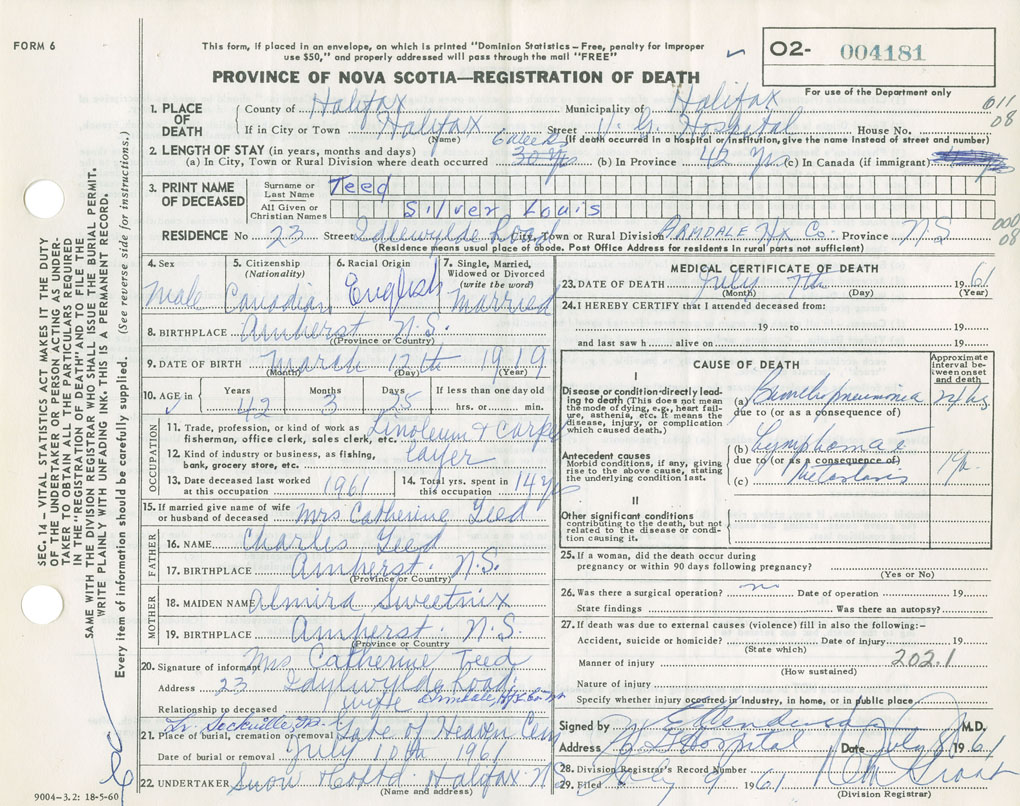 FORM 6
This form, if placed in an envelope, on which is printed "Dominion Statistics – Free, penalty for improper
use $50," and properly addressed will pass through the mail "FREE"
O2- 004181
For use of the Department only
PROVINCE OF NOVA SCOTIA—REGISTRATION OF DEATH
011
08
1. PLACE OF DEATH
County of Halifax Municipality of Halifax
If in City or Town Halifax Street V. G. Hospital House No.
(Name) (If death occurred in a hospital or institution, give the name instead of street and number)
2. LENGTH OF STAY (in years, months and days)
(a) In City, Town or Rural Division where death occurred 6 weeks 30 yrs (b) In Province 42 yrs (c) In Canada (if immigrant)
3. PRINT NAME OF DECEASED
Surname or Last Name Teed
All Given or Christian Names Silver Louis
RESIDENCE No 23 Street Idlewylde Road City, Town or Rural Division ARMDALE Hx Co. Province N.S
000
08
(Residence means usual place of abode. Post Office Address for residents in rural parts not sufficient)
4. Sex Male
5. Citizenship (Nationality) Canadian
6. Racial Origin English
7. Single, Married, Widowed or Divorced (write the word) Married
8. BIRTHPLACE Amherst N.S.
(Province or Country)
9. DATE OF BIRTH March 12th 1919
(Month) (Day) (Year)
10. AGE in Years 42 Months 3 Days 25 If less than one day old hrs. or min.
OCCUPATION
11. Trade, profession, or kind of work as fisherman, office clerk, sales clerk, etc. Linoleum + Carpet
12. Kind of industry or business, as fishing, bank, grocery store, etc. Layer
13. Date deceased last worked at this occupation 1961
14. Total yrs. spent in this occupation 14 yrs
15. If married give name of wife or husband of deceased Mrs Catherine Teed
FATHER
16. NAME Charles Teed
17. BIRTHPLACE Amherst. N.S.
(Province or Country)
MOTHER
18. MAIDEN NAME Almira Sweetnix
19. BIRTHPLACE Amherst. N.S.
(Province or Country
20. Signature of informant Mrs Catherine Teed
Address 23 Idylwylde Road
Armdale, Hfx Co
Relationship to deceased wife
Lr. Sackville
21. Place of burial, cremation or removal Gate of Heaven Cem
Date of burial or removal July 10th 1961
22. UNDERTAKER Snow Halifax N.S
(Name and address)
MEDICAL CERTIFICATE OF DEATH
23. DATE OF DEATH July 7th 1961
(Month) (Day) (Year)
24. I HEREBY CERTIFY that I attended deceased from:
19 to 19
and last saw h alive on 19
CAUSE OF DEATH
Approximate interval between onset and death
I
Disease or condition directly leading to death (This does not mean the mode of dying, e.g., heart failure, asthenia, etc. It means the disease, injury, or complication which caused death.)
(a) Bronchopneumonia 24 hrs
due to (or as a consequence of)
Antecedent causes
Morbid conditions, if any, giving rise to the above cause, stating the underlying condition last.
(b) Lymphoma c̄
due to (or as a consequence of)
(c) Metastasis
II
Other significant conditions
contributing to the death, but not related to the disease or condition causing it.
25. If a woman, did the death occur during
pregnancy or within 90 days following pregnancy?
(Yes or No)
26. Was there a surgical operation? no Date of operation 19
State findings Was there an autopsy?
27. If death was due to external causes (violence) fill in also the following:–
Accident, suicide or homicide? Date of injury 19
(State which)
Manner of injury 202.1
(How sustained)
Nature of injury
Specify whether injury occurred in industry, in home, or in public place
Signed by M.D.
Address V G Hospital Date July 8 1961
28. Division Registrar's Record Number
29. Filed July 9 1961
(Division Registrar)
SEC. 14 – VITAL STATISTICS ACT MAKES IT THE DUTY
OF THE UNDERTAKER OR PERSON ACTING AS UNDER-
TAKER TO OBTAIN ALL THE PARTICULARS REQUIRED
IN THE "REGISTRATION OF DEATH" AND TO FILE THE
SAME WITH THE DIVISION REGISTRAR WHO SHALL ISSUE THE BURIAL PERMIT.
WRITE PLAINLY WITH UNFADING INK. THIS IS A PERMANENT RECORD.
Every item of information should be carefully supplied. (See reverse side for instructions.)
9004-3.2: 18-5-60